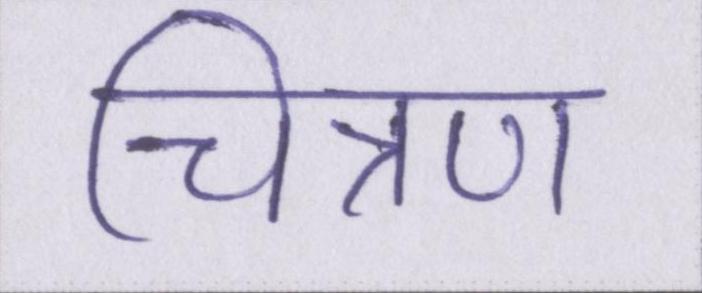 चित्रण